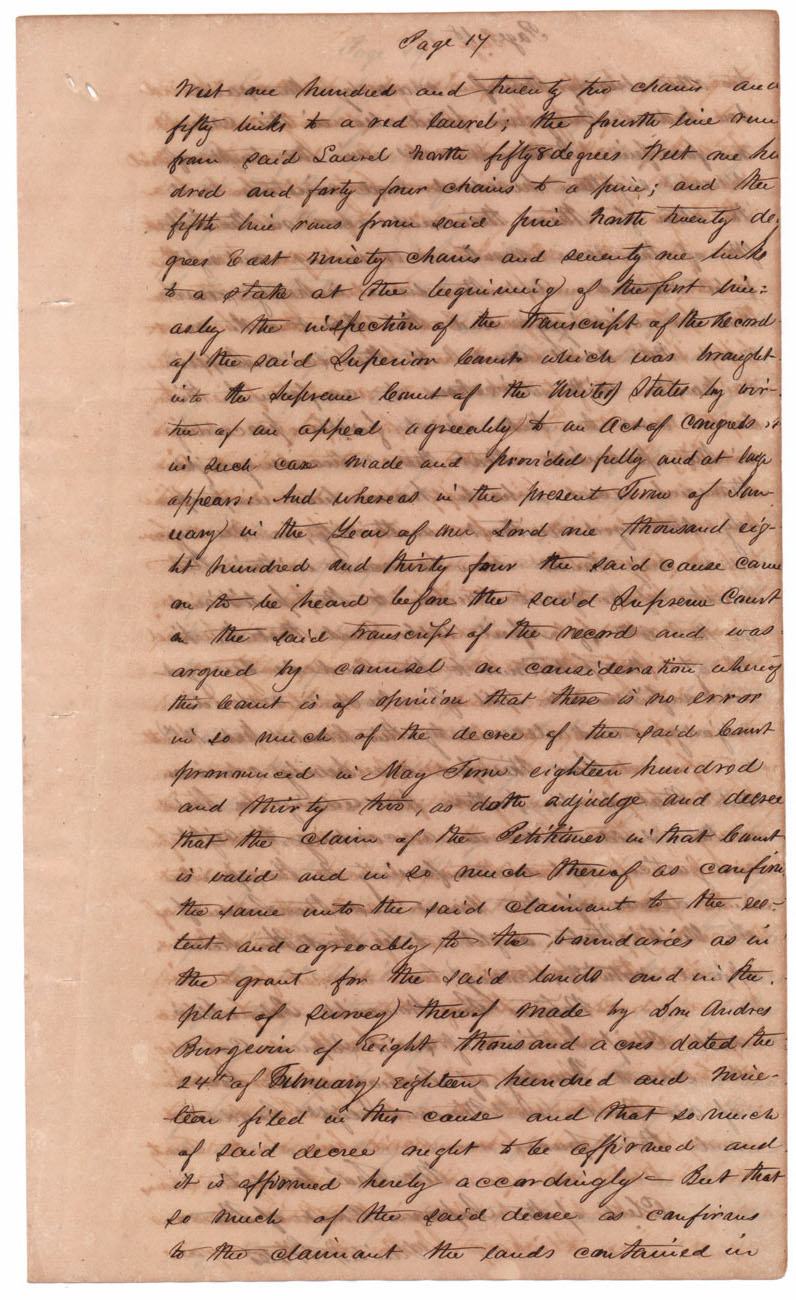 Page 17
West one hundred and twenty two chains and
fifty links to a red laurel; the fourth line runs
from said Laurel North fifty 8 degrees West one hu
dred and forty four chains to a pine; and the
fifth line runs from said pine North twenty de-
grees East ninety chains and seventy one links
to a stake at the beginning of the first line:
as by the inspection of the transcript of the Record
of the said Superior Court which was brought
into the Supreme Court of the United States by vir-
tue of an appeal agreeably to an Act of Congress
in such case made and provided fully and at large
appears: And whereas in the present Term of Jan-
uary in the Year of our Lord one thousand eig-
ht hundred and thirty four the said cause came
on to be heard before the said Supreme Court
on the said transcript of the record and was
argued by counsel on consideration whereof
this Court is of opinion that there is no error
in so much of the decree of the said Court
pronounced in May Term eighteen hundred
and thirty two, as doth adjudge and decree
that the claim of the Petitioner in that Court
is valid and in so much thereof as confirm
the same unto the said claimant to the ex-
tent and agreeably to the boundaries as in
the grant for the said lands and in the
plat of survey thereof made by Don Andres
Burgevin of Eight thousand acres dated the
24th of February eighteen hundred and nine-
teen filed in this cause and that so much
of said decree ought to be affirmed and
it is affirmed hereby accordingly – But that
so much of the said decree as confirms
to the claimant the lands contained in